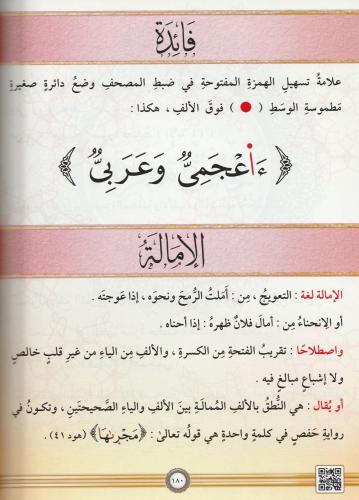 فَائِدَة
علامةُ تسهيلِ الهمزةِ المفتوحةِ في ضبطِ المصحفِ وضعُ دائرةٍ صغيرةٍ
مَطموسةِ الوسَطِ ( ● ) فوقَ الألفِ ، هكذا :
﴿ ءَا۬عْجَمِىٌّ وَعَرَبِىٌّ ﴾
الإِمَالَةُ
الإمالة لغة : التعويجُ ، مِن : أَمَلتُ الرُّمحَ ونحوَه ، إذا عَوجتَه .
أو الِانحناءُ مِن : أمالَ فلانٌ ظهرَهُ : إذا أحناه .
واصطلاحًا : تقريبُ الفتحةِ مِن الكسرةِ ، والألفِ مِن الياءِ مِن غيرِ قلبٍ خالصٍ
ولا إشباعٍ مبالغٍ فيه .
أو يُقال : هي النُّطقُ بالألفِ المُمالةِ بينَ الألفِ والياءِ الصَّحيحتَينِ ، وتكونُ في
روايةِ حَفصٍ في كلمةٍ واحدةٍ هي قولُه تعالىٰ : ﴿مَجْر۪ىٰهَا﴾ (هود ٤١) .
١٨٠